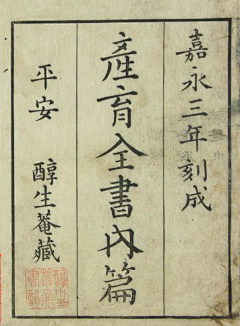 嘉永三年刻成
産育全書内篇
平安 醇生菴藏